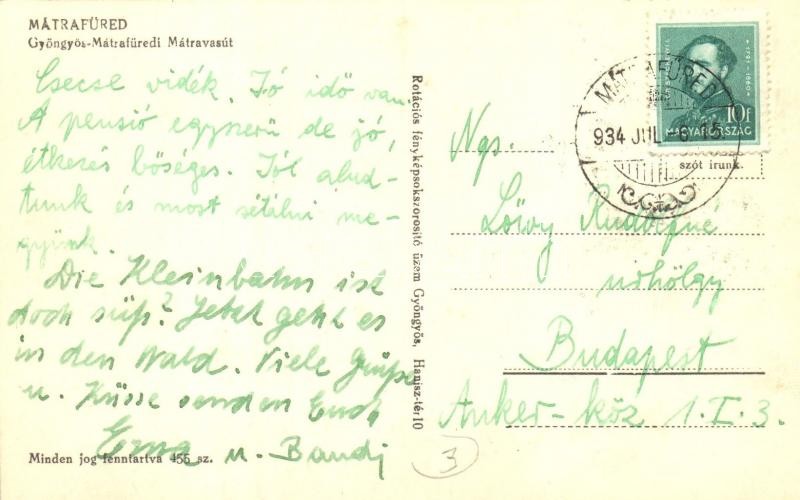 MÁTRAFÜRED
Gyöngyös-Mátrafüredi Mátravasút
Csecse vidék. Jó idő van.
A pensió egyszerű de jó,
étkezés bőséges. Jól alud-
tunk és most sétálni me-
gyünk.
Die Kleinbahn ist
doch süß? Jetzt geht es
in den Wald. Viele Grüße
u. Küsse senden Euch
Erna
u. Bandi
Minden jog fenntartva 455 sz.
Rotációs fényképsokszorosító üzem Gyöngyös, Hanisz-tér 10
MAGYARORSZÁG
10f
1791-1860
MÁTRAFÜRED
934 JUL
szót irunk.
Ngs.
Löwy Rudolfné
urhölgy
Budapest
Anker-köz 1. I. 3.
3